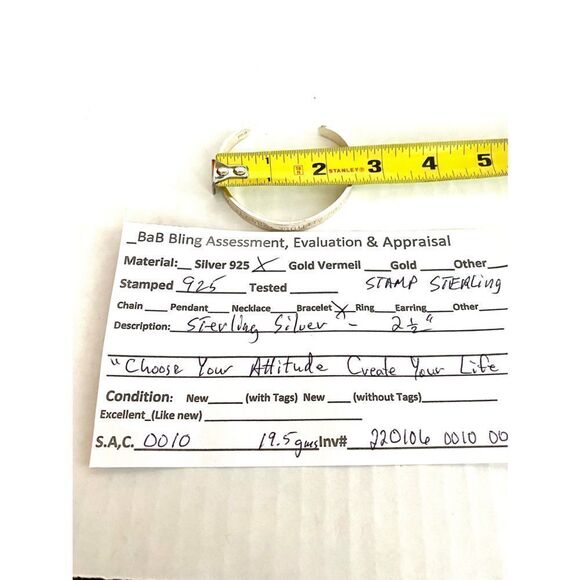 1 2 STANLEY® 3 4 5
_BaB Bling Assessment, Evaluation & Appraisal
Material:__ Silver 925 X Gold Vermeil ___Gold ____Other___
Stamped 925 Tested ______ STAMP STERLING
Chain ___ Pendant___ Necklace____ Bracelet X Ring___ Earring____ Other___
Description: Sterling Silver - 2 ½"
"Choose Your Attitude Create Your Life
Condition: New____ (with Tags) New ___ (without Tags)________
Excellent_(Like new)________
S.A,C. 0010 19.5 gms Inv# 220106 0010 00